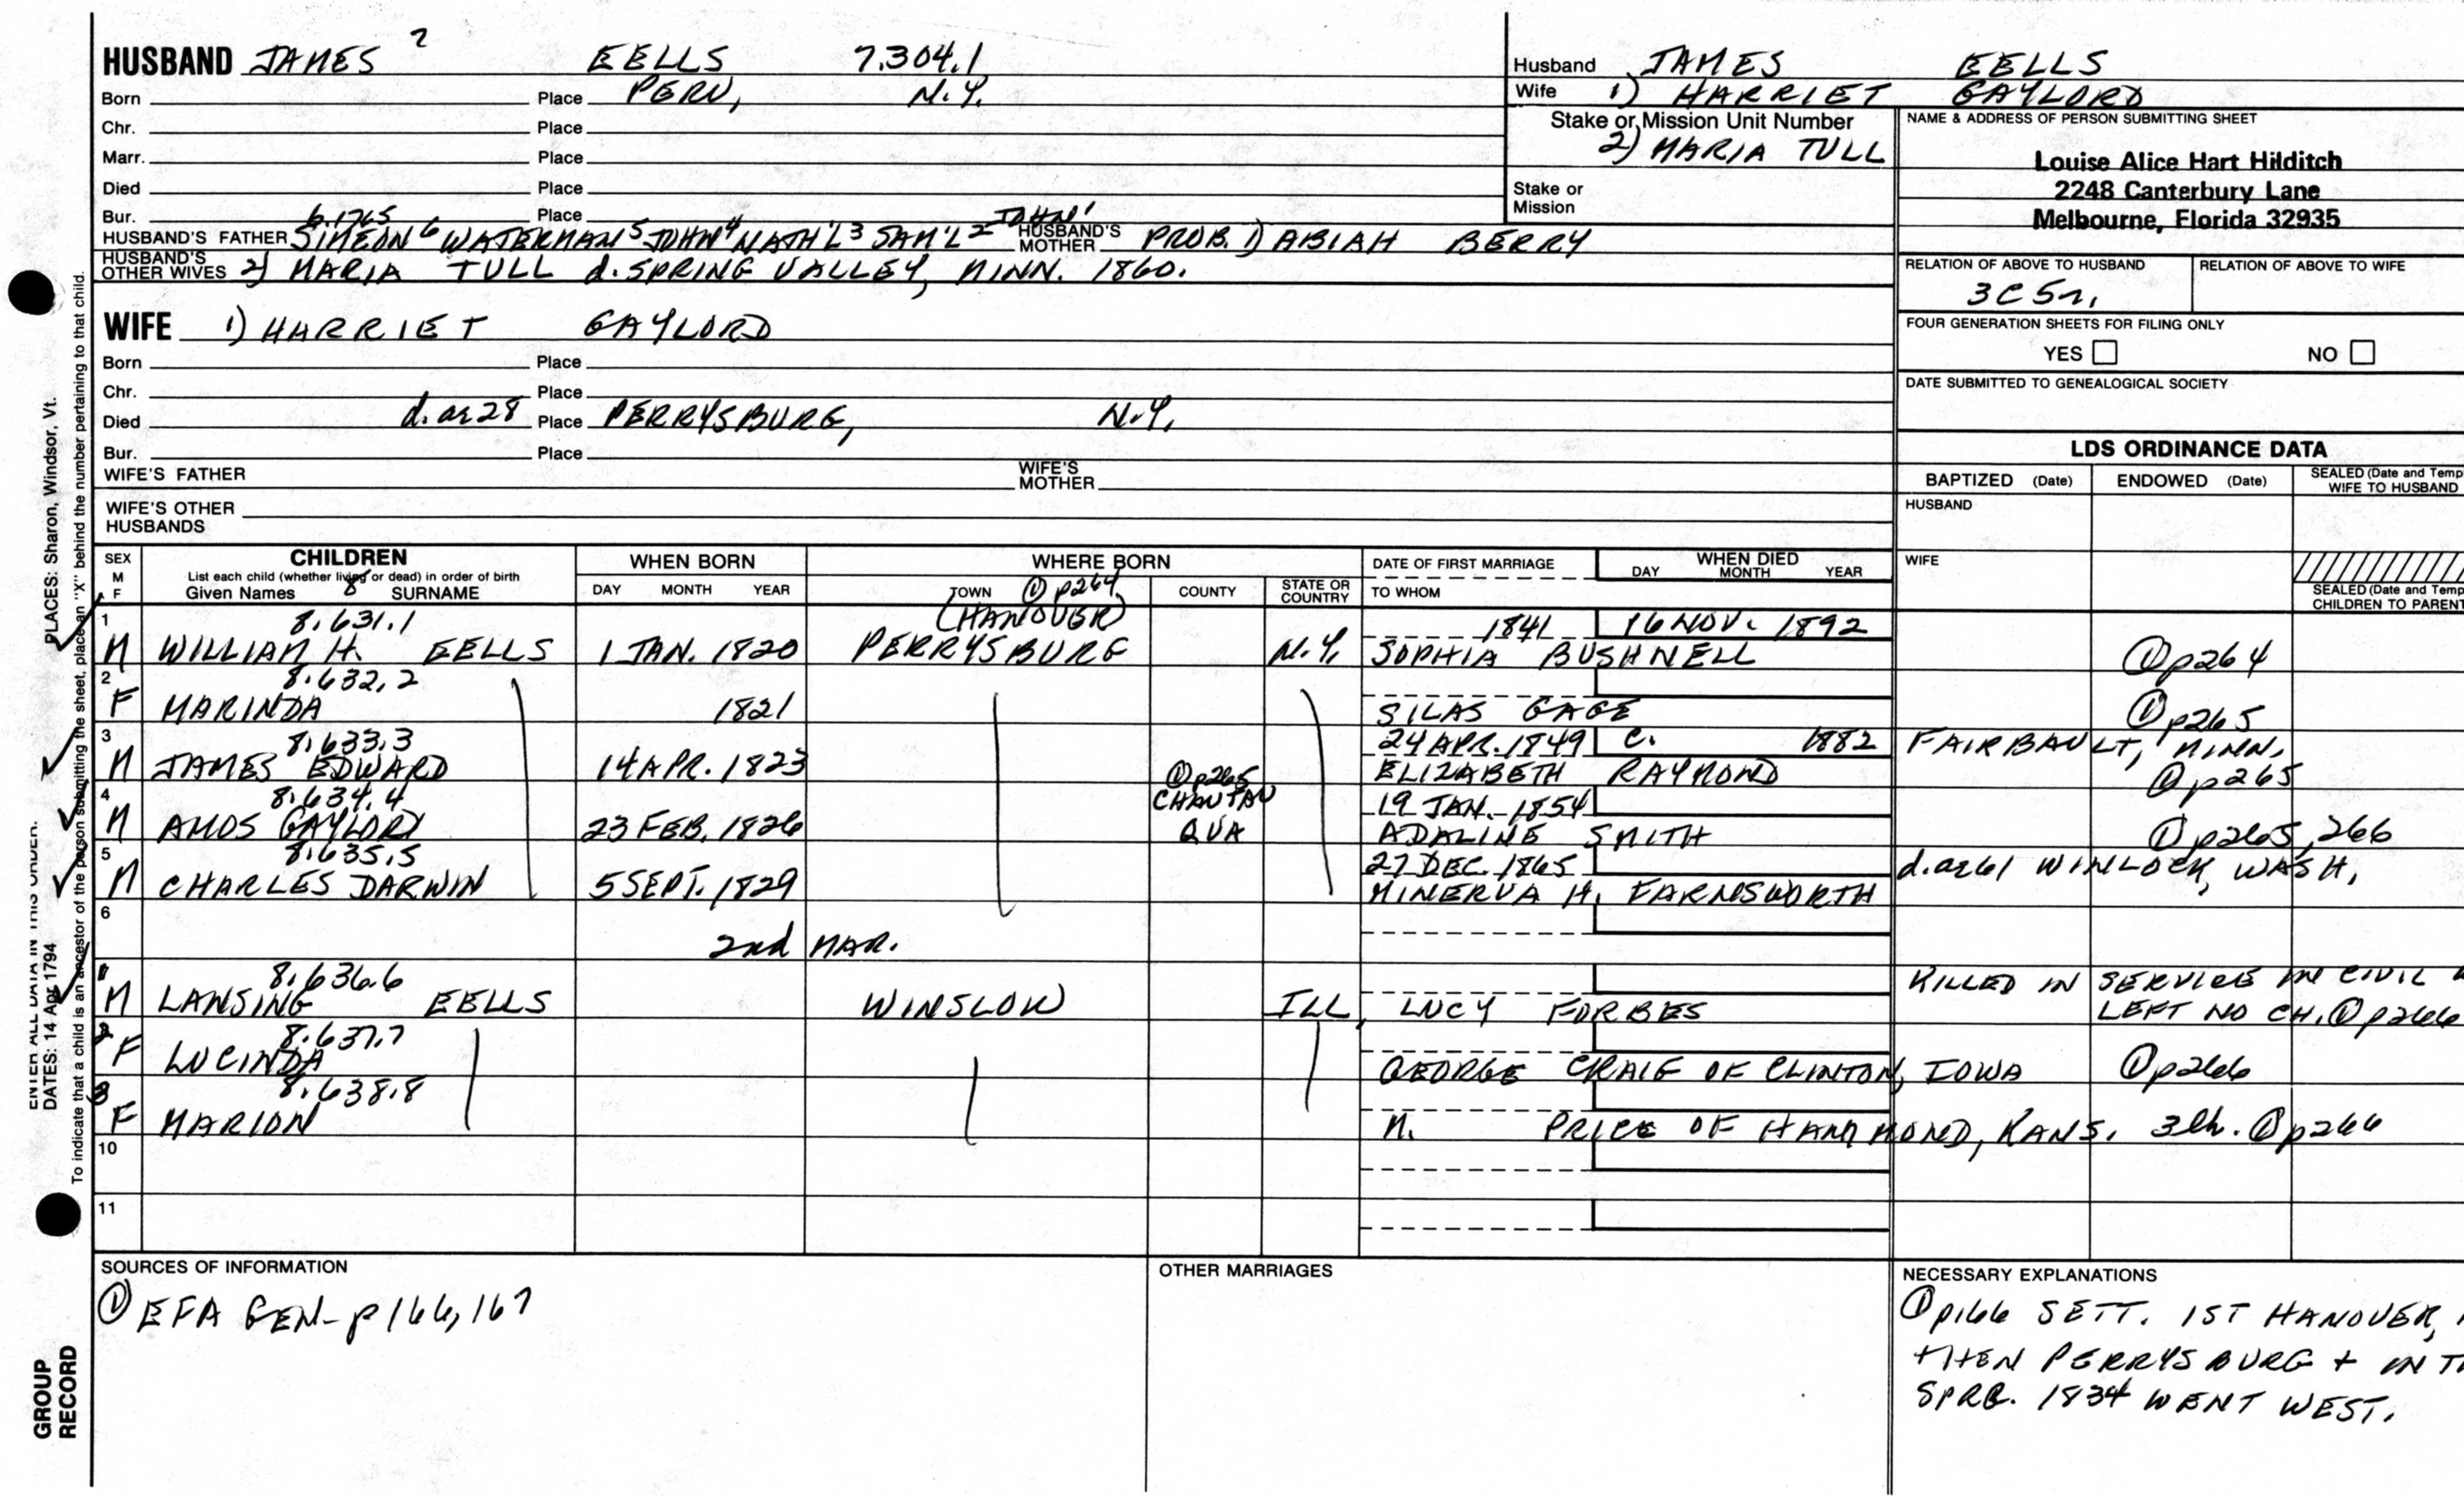 HUSBAND JAMES 7 EELLS 7.304.1
Born Place PERU, N.Y.
Chr. Place
Marr. Place
Died Place
Bur. Place
b.1765 JOHN 1
HUSBAND'S FATHER SIMEON 6 WATERMAN 5 JOHN 4 NATH'L 3 SAM'L 2 HUSBAND'S MOTHER PROB. 1) ABIAH BERRY
HUSBAND'S OTHER WIVES 2) MARIA TULL d. SPRING VALLEY, MINN. 1860.
WIFE 1) HARRIET GAYLORD
Born Place
Chr. Place
Died d. ae 28 Place PERRYSBURG, N.Y.
Bur. Place
WIFE'S FATHER WIFE'S MOTHER
WIFE'S OTHER HUSBANDS
Husband JAMES EELLS
Wife 1) HARRIET GAYLORD
Stake or Mission Unit Number
2) MARIA TULL
Stake or Mission
NAME & ADDRESS OF PERSON SUBMITTING SHEET
Louise Alice Hart Hilditch
2248 Canterbury Lane
Melbourne, Florida 32935
RELATION OF ABOVE TO HUSBAND RELATION OF ABOVE TO WIFE
3C5r.
FOUR GENERATION SHEETS FOR FILING ONLY
YES NO
DATE SUBMITTED TO GENEALOGICAL SOCIETY
LDS ORDINANCE DATA
BAPTIZED (Date) ENDOWED (Date) SEALED (Date and Temp
WIFE TO HUSBAND
HUSBAND
WIFE
SEALED (Date and Temp
CHILDREN TO PARENT
SEX M F CHILDREN WHEN BORN WHERE BORN DATE OF FIRST MARRIAGE WHEN DIED
List each child (whether living or dead) in order of birth
Given Names 8 SURNAME DAY MONTH YEAR TOWN ① p264 COUNTY STATE OR COUNTRY TO WHOM DAY MONTH YEAR
1 8.631.1 (HANOVER) 1841 16 NOV. 1892
M WILLIAM H. EELLS 1 JAN. 1820 PERRYSBURG N.Y. SOPHIA BUSHNELL ① p264
2 8.632.2
F MARINDA 1821 SILAS GAGE ① p265
3 8.633.3 24 APR. 1849 C. 1882 FAIRBAULT, MINN.
M JAMES EDWARD 14 APR. 1823 ① p265 ELIZABETH RAYMOND ① p265
4 8.634.4 CHAUTAU 19 JAN. 1854
M AMOS GAYLORD 23 FEB. 1826 QUA ADALINE SMITH ① p265, 266
5 8.635.5 27 DEC. 1865 d. ae 61 WINLOCK, WASH.
M CHARLES DARWIN 5 SEPT. 1829 MINERVA H. FARNSWORTH
6
2nd MAR.
1 8.636.6 KILLED IN SERVICE IN CIVIL
M LANSING EELLS WINSLOW ILL. LUCY FORBES LEFT NO CH. ① p266
2 8.637.7
F LUCINDA GEORGE CRAIG OF CLINTON, IOWA ① p266
3 8.638.8
F MARION M. PRICE OF HAMMOND, KANS. 3 ch. ① p266
10
11
SOURCES OF INFORMATION
① EFA GEN- p 166, 167
OTHER MARRIAGES
NECESSARY EXPLANATIONS
① p166 SETT. 1ST HANOVER,
THEN PERRYSBURG + IN TH
SPRG. 1834 WENT WEST.
PLACES: Sharon, Windsor, Vt.
ENTER ALL DATA IN THIS ORDER:
DATES: 14 Apr 1794
To indicate that a child is an ancestor of the person submitting the sheet, place an "X" behind the number pertaining to that child.
GROUP
RECORD